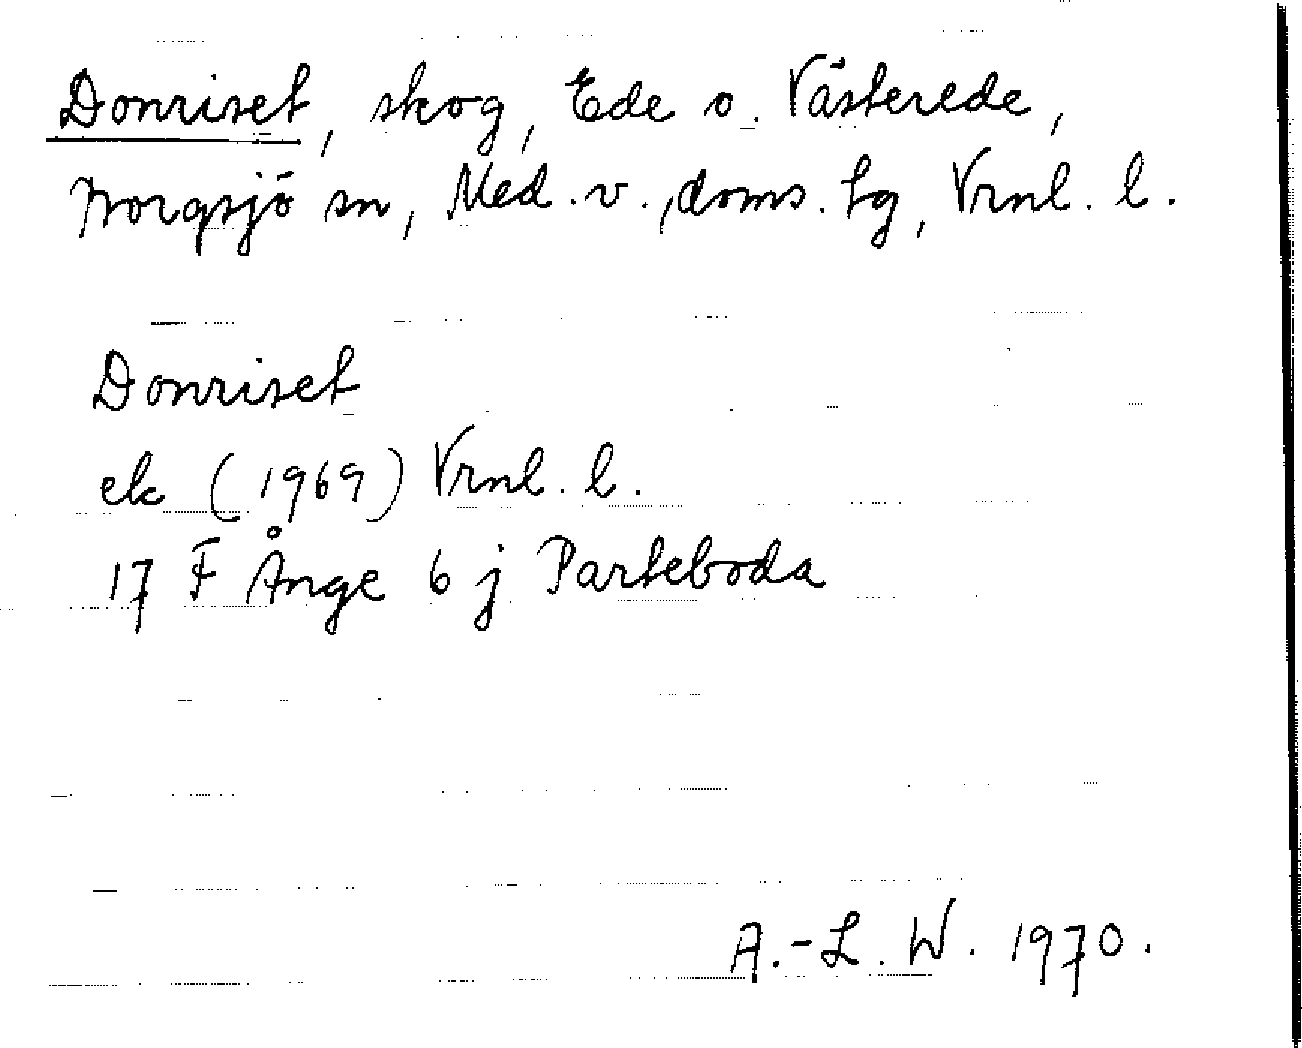 Donriset, skog, Ede o. Västerede,
Borgsjö sn, Med. v., doms. hg, Vrnl. l.
Donriset
ek (1969) Vrnl. l.
17 F Ånge 6 j Parteboda
A.-L. W. 1970.